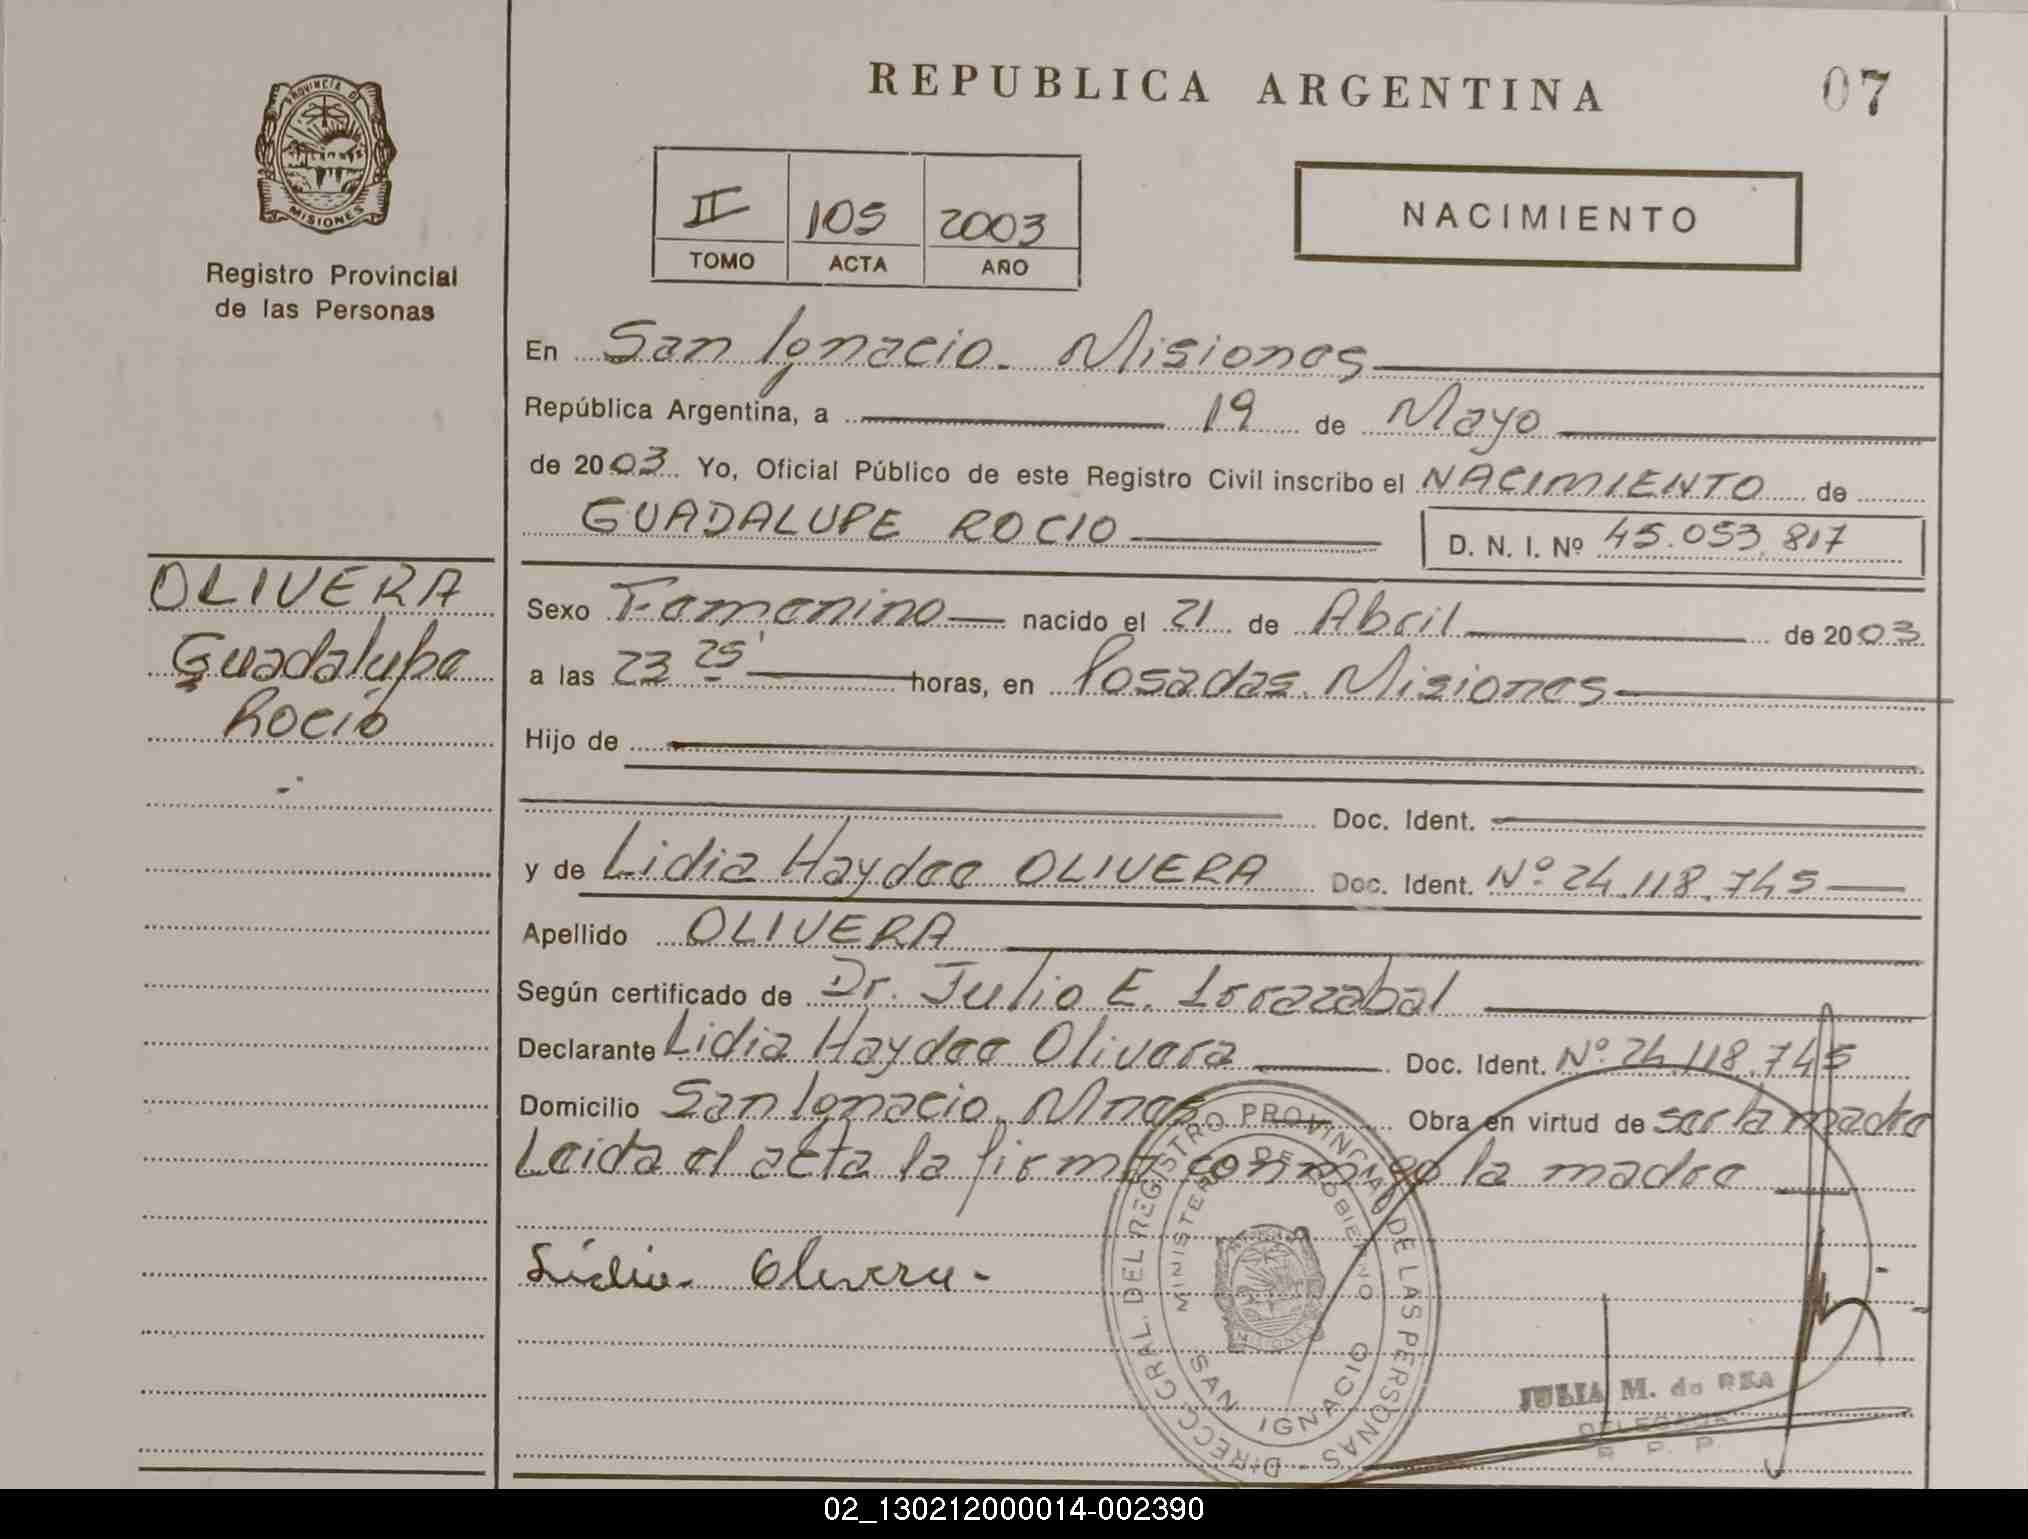 REPUBLICA ARGENTINA
07
PROVINCIA DE
MISIONES
Registro Provincial
de las Personas
II 105 2003
TOMO ACTA AÑO
NACIMIENTO
En San Ignacio. Misiones
República Argentina, a 19 de Mayo
de 2003 Yo, Oficial Público de este Registro Civil inscribo el NACIMIENTO de
GUADALUPE ROCIO
D. N. I. Nº 45.053.817
OLIVERA
Guadalupe
Rocio
Sexo Femenino nacido el 21 de Abril de 2003
a las 23 25' horas, en Posadas. Misiones
Hijo de
Doc. Ident.
y de Lidia Haydee OLIVERA Doc. Ident. Nº 24.118.745
Apellido OLIVERA
Según certificado de Dr. Julio E. Irrazabal
Declarante Lidia Haydee Olivera Doc. Ident. Nº 24.118.745
Domicilio San Ignacio. Mnes Obra en virtud de ser la madre
Leida el acta la firma conmigo la madre
Lidia Olivera
DIRECC. GRAL. DEL REGISTRO PROVINCIAL DE LAS PERSONAS
MINISTERIO DE GOBIERNO
MISIONES
SAN IGNACIO
JULIA M. de REA
DELEGADA
R. P. P.
02_130212000014-002390